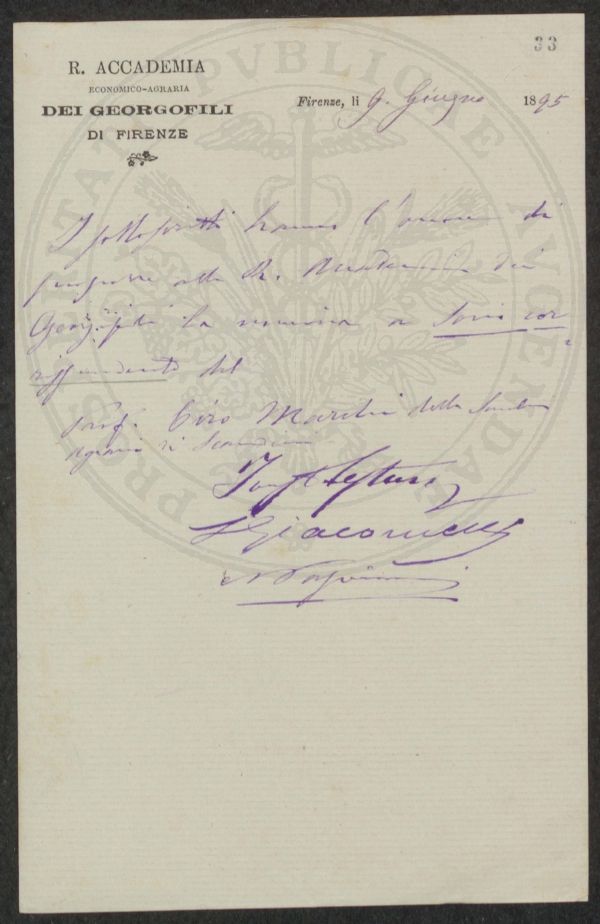 33
R. ACCADEMIA
ECONOMICO-AGRARIA
DEI GEORGOFILI
DI FIRENZE
Firenze, li 9. Giugno 1895
PROSPERITATI PVBLICAE AVGENDAE
I sottoscritti hanno l'onore di
proporre alla R. Accademia dei
Georgofili la nomina a Socio cor-
rispondente del
prof. Ciro Marchi della Scuola
Agraria di Scandicci
Giacomelli